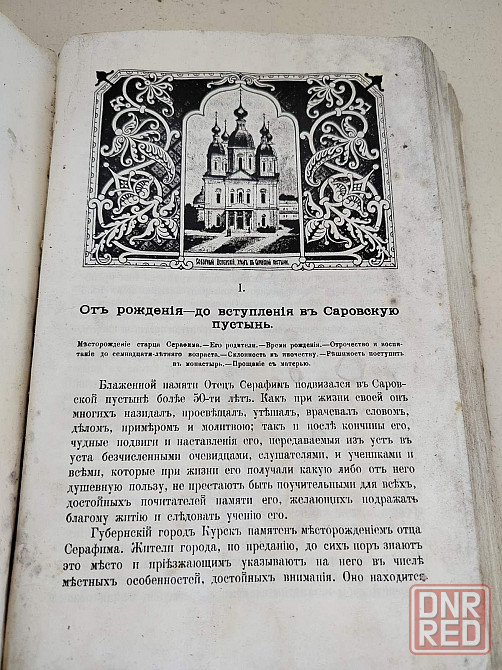 СОБОРНЫЙ УСПЕНСКІЙ ХРАМЪ ВЪ САРОВСКОЙ ПУСТЫНИ.
I.
Отъ рожденія—до вступленія въ Саровскую
пустынь.
Мѣсторожденіе старца Серафима.—Его родители.—Время рожденія.—Отрочество и воспи-
таніе до семнадцати-лѣтняго возраста.—Склонность къ иночеству.—Рѣшимость поступить
въ монастырь.—Прощаніе съ матерью.
Блаженной памяти Отецъ Серафимъ подвизался въ Саров-
ской пустынѣ болѣе 50-ти лѣтъ. Какъ при жизни своей онъ
многихъ назидалъ, просвѣщалъ, утѣшалъ, врачевалъ словомъ,
дѣломъ, примѣромъ и молитвою; такъ и послѣ кончины его,
чудные подвиги и наставленія его, передаваемыя изъ устъ въ
уста безчисленными очевидцами, слушателями, и учениками и
всѣми, которые при жизни его получали какую либо отъ него
душевную пользу, не престаютъ быть поучительными для всѣхъ,
достойныхъ почитателей памяти его, желающихъ подражать
благому житію и слѣдовать ученію его.
Губернскій городъ Курскъ памятенъ мѣсторожденіемъ отца
Серафима. Жители города, по преданію, до сихъ поръ знаютъ
это мѣсто и пріѣзжающимъ указываютъ на него въ числѣ
мѣстныхъ особенностей, достойныхъ вниманія. Оно находится
DNR
RED